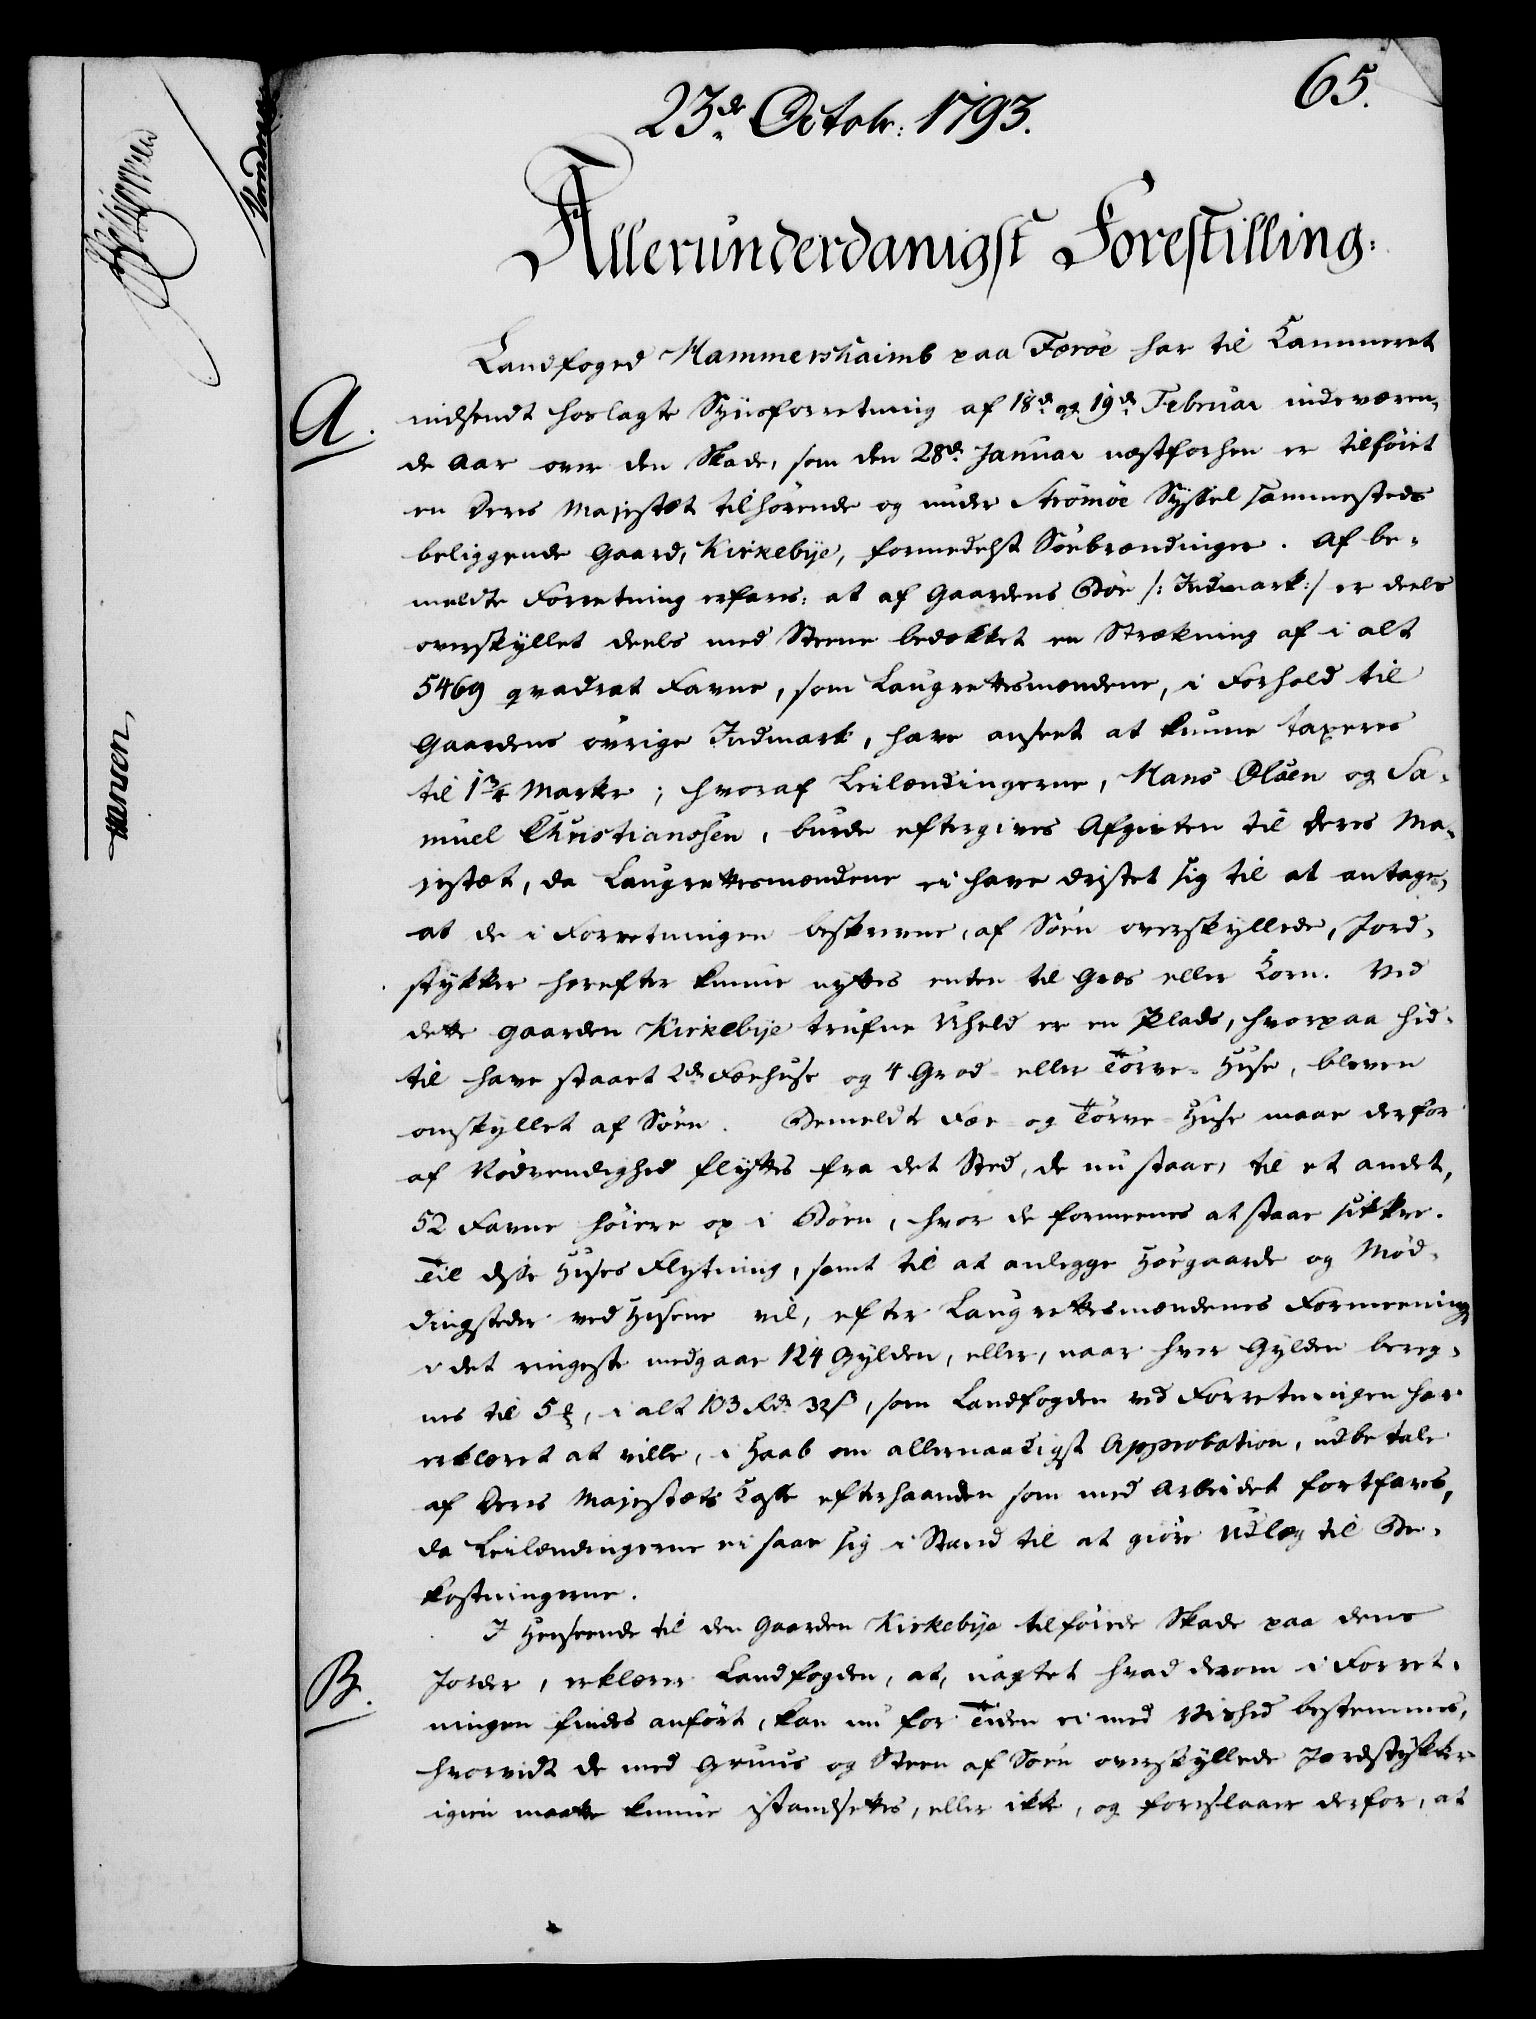 23de Octobr: 1793.
65.
Allerunderdanigst Forestilling:
Landfoged Hammershaimb paa Færöe har til Kammeret
A.
indsendt hoslagte Syńsforretning af 18de og 19de Februar indeværen-
de Aar over den Skade, som den 28de Januar næstforhen er tilföiet
en Deres Majestæt tilhörende og under Strömöe Syssel sammesteds
beliggende Gaard, Kirkebÿe, formedelst Söebrændinger. Af be-
meldte Forretning erfares: at af Gaardens Böe /: Indmark:/ er deels
overskyllet deels med Steene bedækket en Strækning af i alt
5469 qvadrat Favne, som Laugrettesmændene, i Forhold til
Gaardens övrige Indmark, have anseet at kunne taxeres
til 1¾ Marker; hvoraf Leilændingerne, Hans Olsen og Sa-
muel Christianssen, burde eftergives Afgivten til Deres Ma-
jestæt, da Laugrettesmændene ei have dristet sig til at antage,
at de i Forretningen beskrevne, af Söen overskyllede, Jord-
stykker herefter kunne nyttes enten til Græs eller Korn. Ved
dette Gaarden Kirkebÿe trufne Uheld er en Plads, hvorpaa hid-
til have staaet 2de Fæehuse og 4 Grod- eller Törve-Huse, bleven
omskyllet af Söen. Bemeldte Fæe- og Törve-Huse maae derfor
af Nödvendighed flyttes fra det Sted, de nu staae, til et andet,
52 Favne höiere op i Böen, hvor de formeenes at staae sikkre.
Til disse Huses Flytning, samt til at anlegge Höegaarde og Möd-
dingsteder ved Husene vil, efter Laugrettesmændenes Formeening
i det ringeste medgaae 124 Gylden, eller, naar hver Gylden bereg-
nes til 5 ₰, i alt 103 Rdr 32 ß, som Landfogden ved Forretningen har
erklæret at ville, i Haab om allernaadigst Approbation, udbetale
af Deres Majestæts Casse efterhaanden som med Arbeidet fortfares,
da Leilændingerne ei saae sig i Stand til at giöre Udlæg til Be-
kostningerne.
I Henseende til den Gaarden Kirkebÿe tilföiede Skade paa dens
B.
Jorder, erklærer Landfogden, at, uagtet hvad derom i Forret-
ningen findes anfört, kan nu for Tiden ei med Vished bestemmes,
hvorvidt de med Gruus og Steen af Söen overskyllede Jordstykker
igien maatte kunne istandsettes, eller ikke, og foreslaaer derfor, at
Hansen